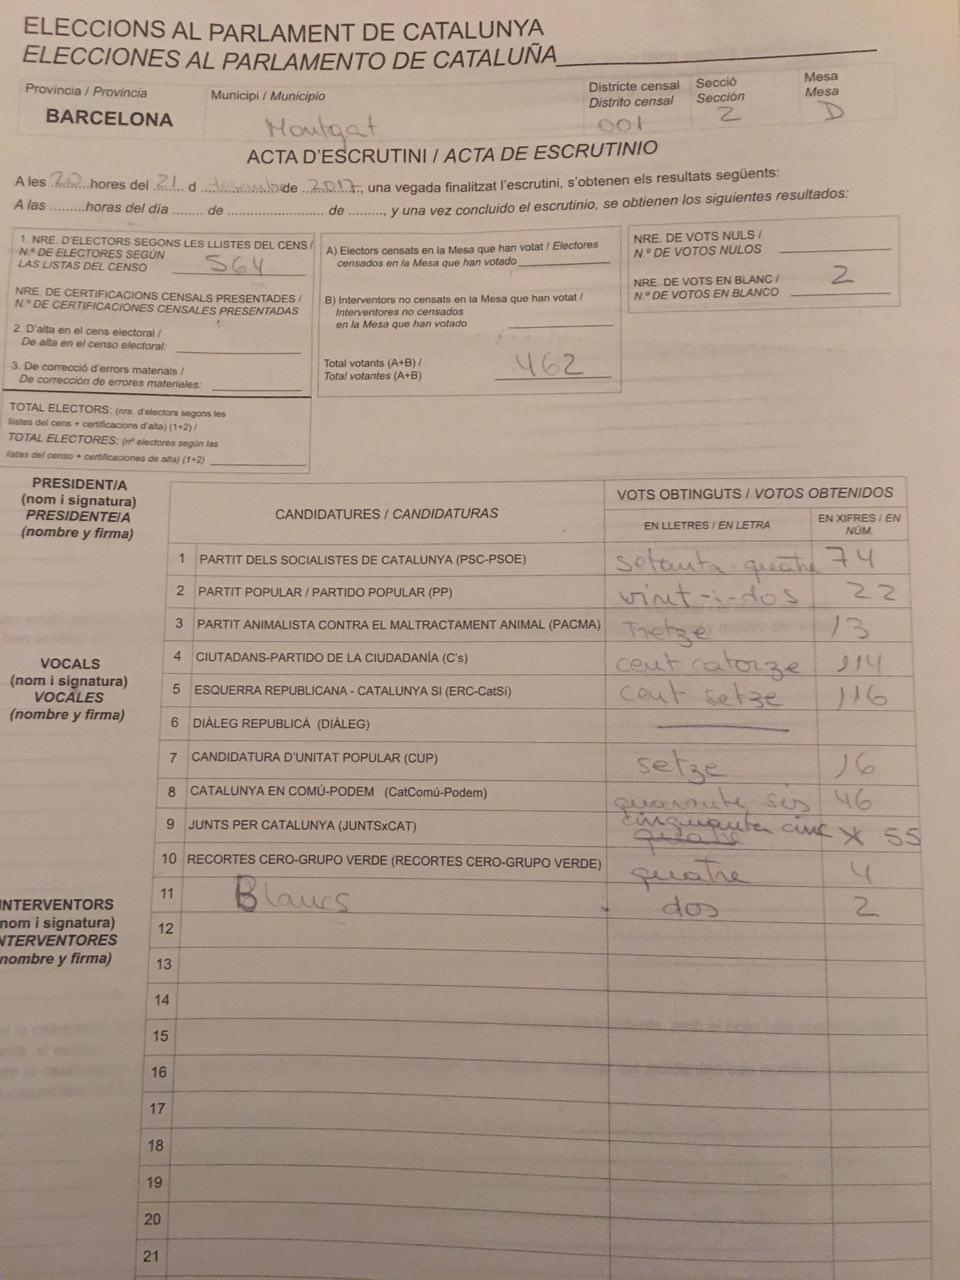 ELECCIONS AL PARLAMENT DE CATALUNYA
ELECCIONES AL PARLAMENTO DE CATALUÑA
Provincia / Provincia
BARCELONA
Municipi / Municipio
Montgat
Districte censal
Distrito censal
001
Secció
Sección
2
Mesa
Mesa
D
ACTA D'ESCRUTINI / ACTA DE ESCRUTINIO
A les 20 hores del 21 d desembre de 2017, una vegada finalitzat l'escrutini, s'obtenen els resultats següents:
A las .........horas del día ........ de ......................... de ........, y una vez concluido el escrutinio, se obtienen los siguientes resultados:
1. NRE. D'ELECTORS SEGONS LES LLISTES DEL CENS /
N.º DE ELECTORES SEGÚN
LAS LISTAS DEL CENSO 564
NRE. DE CERTIFICACIONS CENSALS PRESENTADES /
N.º DE CERTIFICACIONES CENSALES PRESENTADAS
2. D'alta en el cens electoral /
De alta en el censo electoral:
3. De correcció d'errors materials /
De corrección de errores materiales:
TOTAL ELECTORS: (nre. d'electors segons les
llistes del cens + certificacions d'alta) (1+2) /
TOTAL ELECTORES: (nº electores según las
listas del censo + certificaciones de alta) (1+2)
A) Electors censats en la Mesa que han votat / Electores
censados en la Mesa que han votado
B) Interventors no censats en la Mesa que han votat /
Interventores no censados
en la Mesa que han votado
Total votants (A+B) /
Total votantes (A+B) 462
NRE. DE VOTS NULS /
N.º DE VOTOS NULOS
NRE. DE VOTS EN BLANC /
N.º DE VOTOS EN BLANCO 2
PRESIDENT/A
(nom i signatura)
PRESIDENTE/A
(nombre y firma)
VOCALS
(nom i signatura)
VOCALES
(nombre y firma)
INTERVENTORS
(nom i signatura)
INTERVENTORES
(nombre y firma)
CANDIDATURES / CANDIDATURAS
VOTS OBTINGUTS / VOTOS OBTENIDOS
EN LLETRES / EN LETRA
EN XIFRES / EN
NÚM.
1 PARTIT DELS SOCIALISTES DE CATALUNYA (PSC-PSOE) setanta-quatre 74
2 PARTIT POPULAR / PARTIDO POPULAR (PP) vint-i-dos 22
3 PARTIT ANIMALISTA CONTRA EL MALTRACTAMENT ANIMAL (PACMA) Tretze 13
4 CIUTADANS-PARTIDO DE LA CIUDADANÍA (C's) cent catorze 114
5 ESQUERRA REPUBLICANA - CATALUNYA SI (ERC-CatSí) cent setze 116
6 DIÀLEG REPUBLICÀ (DIÀLEG)
7 CANDIDATURA D'UNITAT POPULAR (CUP) setze 16
8 CATALUNYA EN COMÚ-PODEM (CatComú-Podem) quaranta sis 46
9 JUNTS PER CATALUNYA (JUNTSxCAT) cinquanta cinc X 55
10 RECORTES CERO-GRUPO VERDE (RECORTES CERO-GRUPO VERDE) quatre 4
11 Blancs dos 2
12
13
14
15
16
17
18
19
20
21